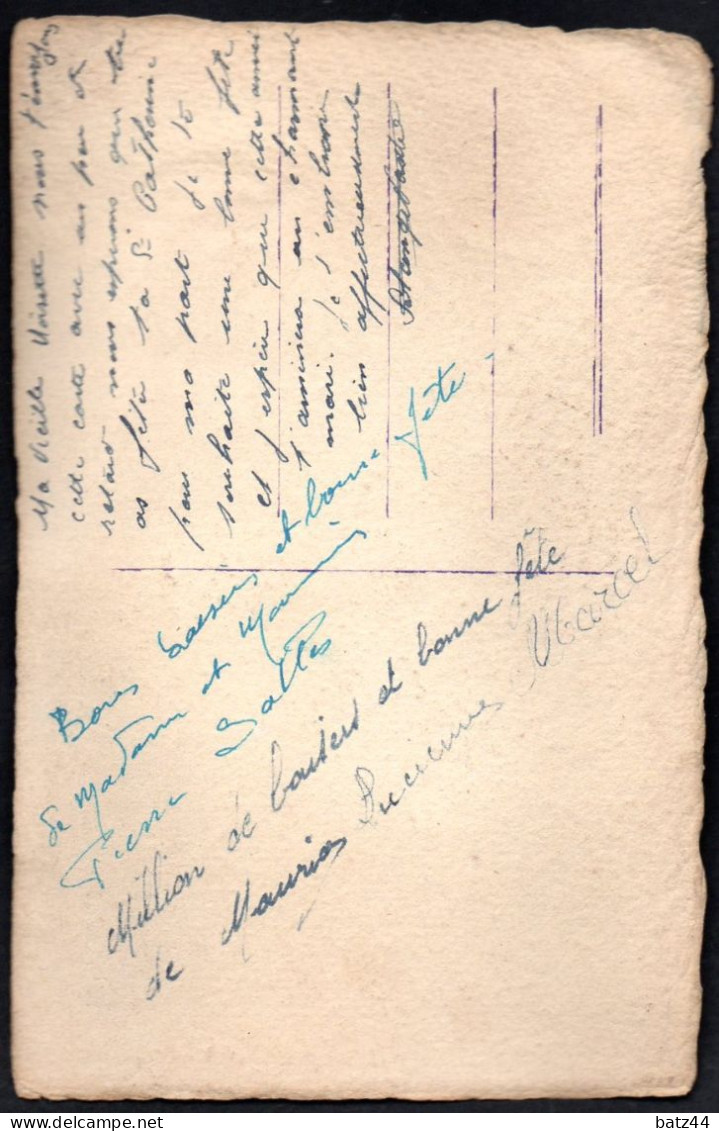 Ma Vieille Noisette nous t'envoyons
cette carte avec un peu de
retard nous espérons que tu
as fêté ta Ste Catherine
pour ma part je te
souhaite une bonne fête
et j'espère que cette année
t'amènera un charmant
mari. Je t'embrasse
bien affectueusement
Bons baisers et bonne fête -
de Madame et Monsieur
Pierre Salles
Million de baisers et bonne fête
de Maurice Lucienne Marcel
batz44